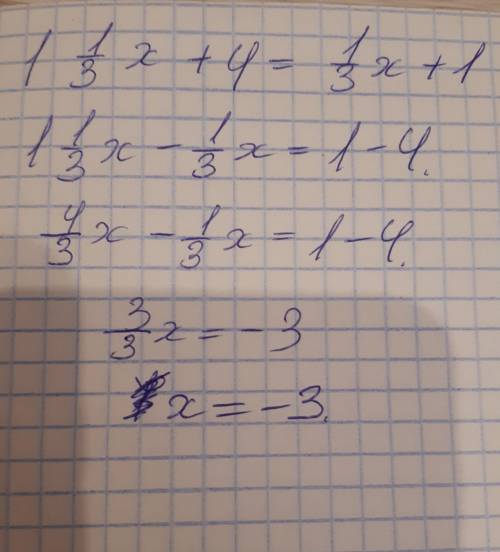 1 1/3 x + 4 = 1/3 x + 1
1 1/3 x - 1/3 x = 1 - 4.
4/3 x - 1/3 x = 1 - 4.
3/3 x = - 3
x = - 3.